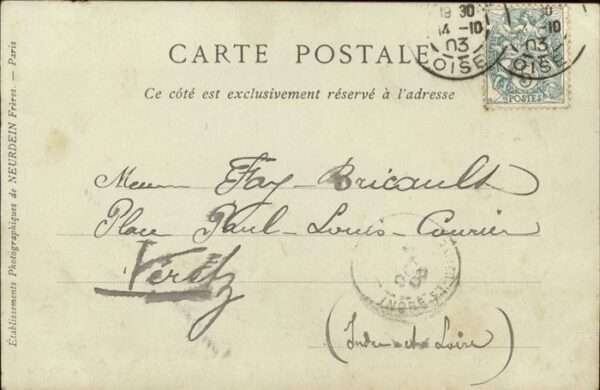 CARTE POSTALE
Ce côté est exclusivement réservé à l'adresse
Établissements Photographiques de NEURDEIN Frères. — Paris
30
14-10
03
OISE
30
10
03
OISE
5
POSTES
Fay-Bricault
Place Paul-Louis-Courier
Veretz
INDRE-ET-
(Indre-et-Loire)